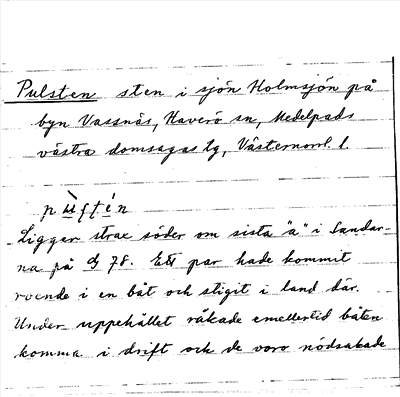 Pulsten sten i sjön Holmsjön på
byn Vassnäs, Haverö sn, Medelpads
västra domsagas tg, Västernorrl. l.
Ligger strax söder om sista "a" i Sandar-
na på G 78. Ett par hade kommit
roende i en båt och stigit i land där.
Under uppehållet råkade emellertid båten
komma i drift och de voro nödsakade